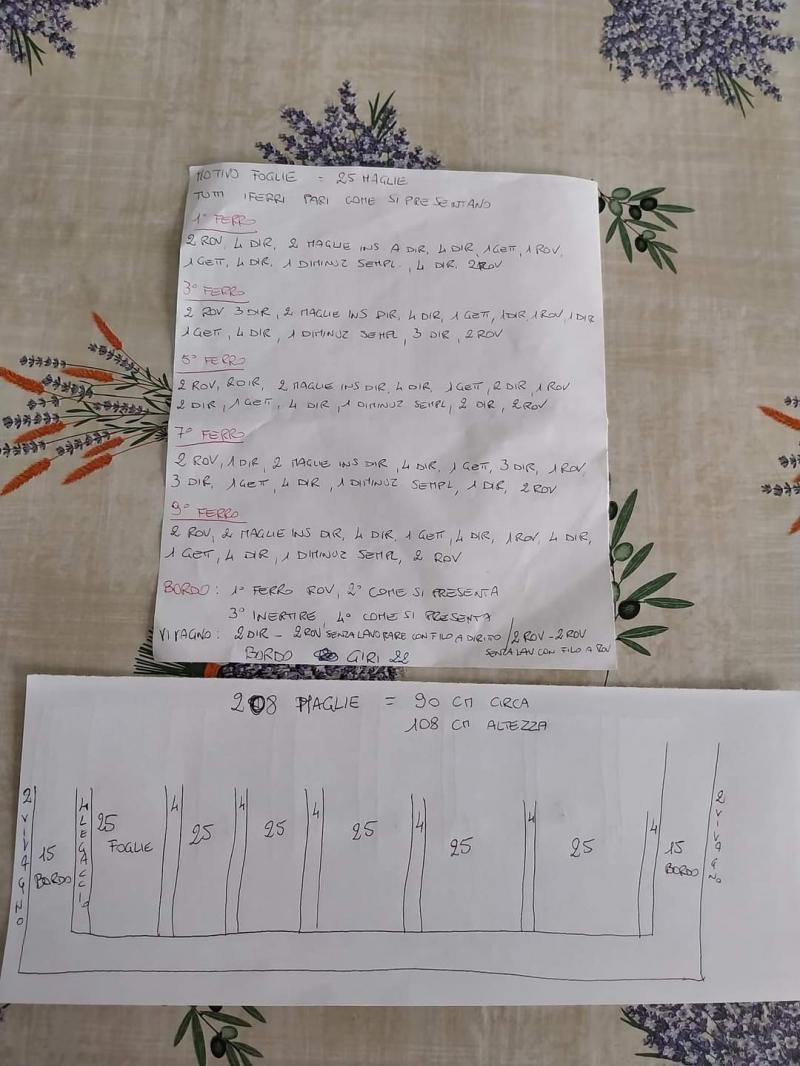 MOTIVO FOGLIE = 25 MAGLIE
TUTTI I FERRI PARI COME SI PRESENTANO
1° FERRO
2 ROV, 4 DIR, 2 MAGLIE INS A DIR, 4 DIR, 1 GETT, 1 ROV,
1 GETT, 4 DIR, 1 DIMINUZ SEMPL., 4 DIR, 2 ROV
3° FERRO
2 ROV 3 DIR, 2 MAGLIE INS DIR, 4 DIR, 1 GETT, 1 DIR, 1 ROV, 1 DIR
1 GETT, 4 DIR, 1 DIMINUZ SEMPL, 3 DIR, 2 ROV
5° FERRO
2 ROV, 2 DIR, 2 MAGLIE INS DIR, 4 DIR, 1 GETT, 2 DIR, 1 ROV
2 DIR, 1 GETT, 4 DIR, 1 DIMINUZ SEMPL, 2 DIR, 2 ROV
7° FERRO
2 ROV, 1 DIR, 2 MAGLIE INS DIR, 4 DIR, 1 GETT, 3 DIR, 1 ROV,
3 DIR, 1 GETT, 4 DIR, 1 DIMINUZ SEMPL, 1 DIR, 2 ROV
9° FERRO
2 ROV, 2 MAGLIE INS DIR, 4 DIR, 1 GETT, 4 DIR, 1 ROV, 4 DIR,
1 GETT, 4 DIR, 1 DIMINUZ SEMPL, 2 ROV
BORDO: 1° FERRO ROV, 2° COME SI PRESENTA
3° INERTIRE, 4° COME SI PRESENTA
VIVAGNO: 2 DIR - 2 ROV SENZA LAVORARE CON FILO A DIRITO / 2 ROV - 2 ROV
SENZA LAV CON FILO A ROV
BORDO GIRI 22
208 MAGLIE = 90 CM CIRCA
108 CM ALTEZZA
2 VIVAGNO
15 BORDO
4 LEGACCIO
25 FOGLIE
4
25
4
25
4
25
4
25
4
25
4
15 BORDO
2 VIVAGNO